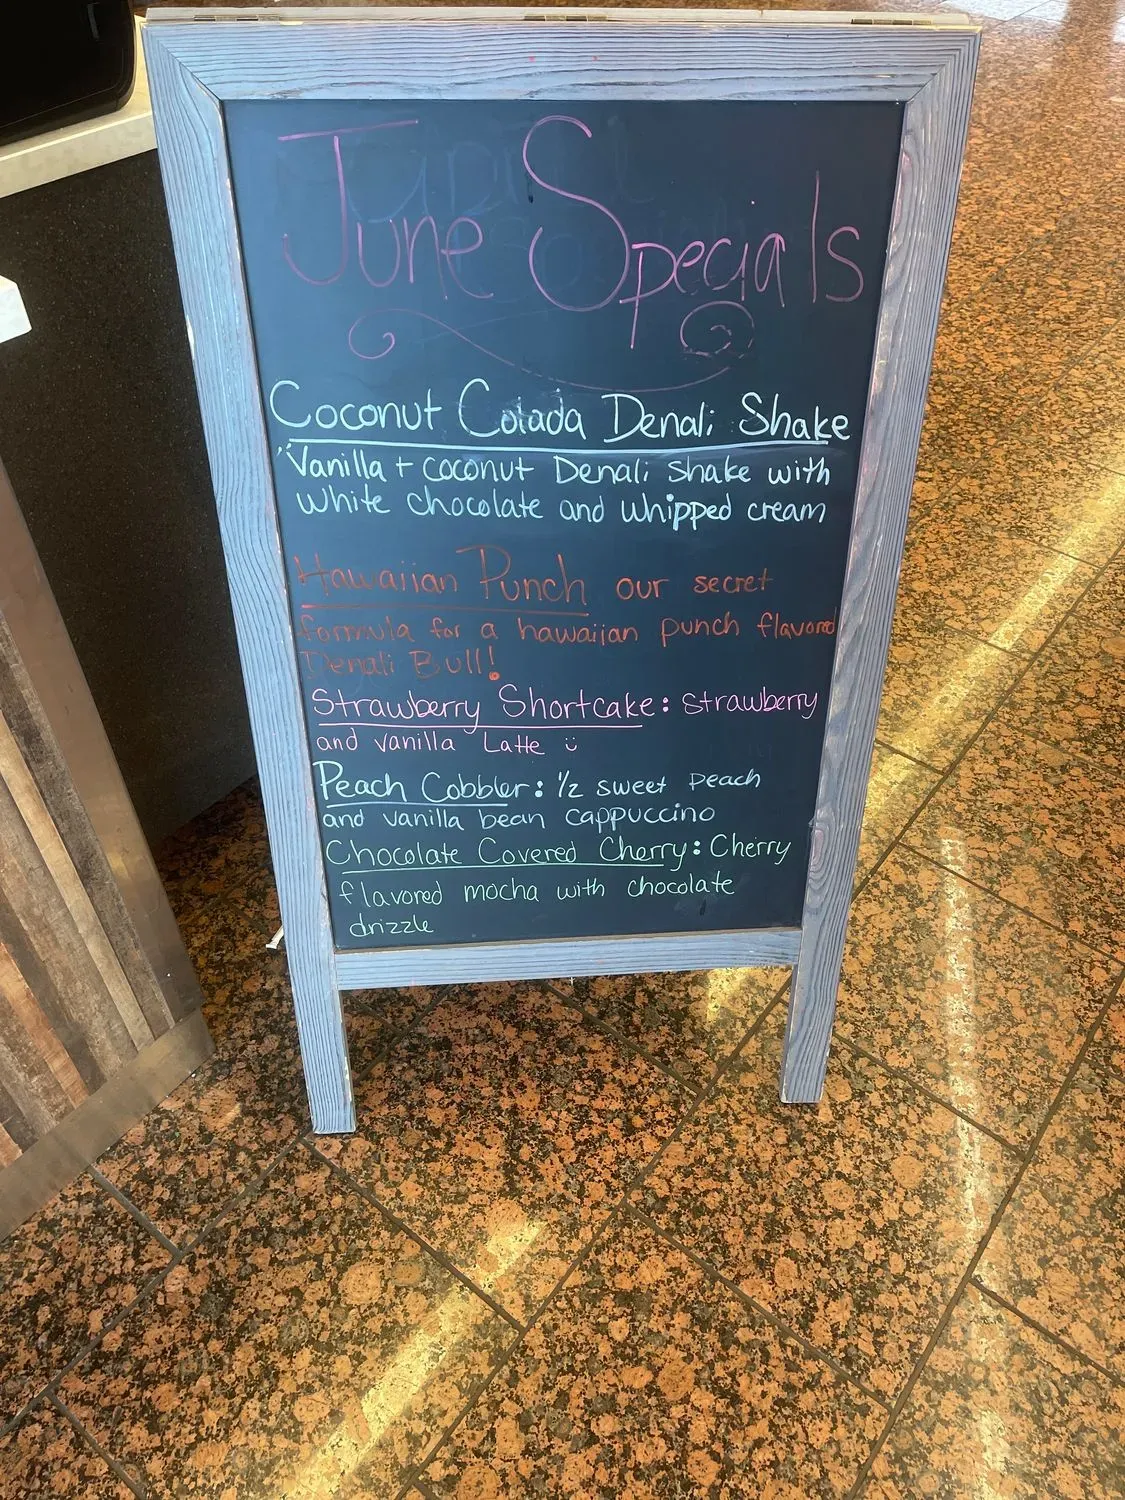 June Specials
Coconut Colada Denali Shake
Vanilla + coconut Denali shake with
white chocolate and whipped cream
Hawaiian Punch our secret
formula for a hawaiian punch flavored
Denali Bull!
Strawberry Shortcake: Strawberry
and vanilla Latte ü
Peach Cobbler: 1/2 sweet peach
and vanilla bean cappuccino
Chocolate Covered Cherry: Cherry
flavored mocha with chocolate
drizzle